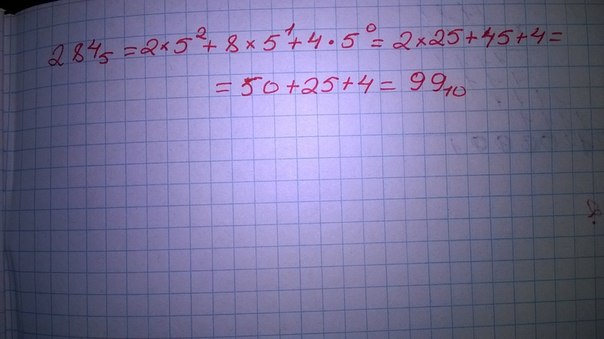 284₅ = 2×5² + 8×5¹ + 4·5⁰ = 2×25 + 45 + 4 =
= 50 + 25 + 4 = 99₁₀